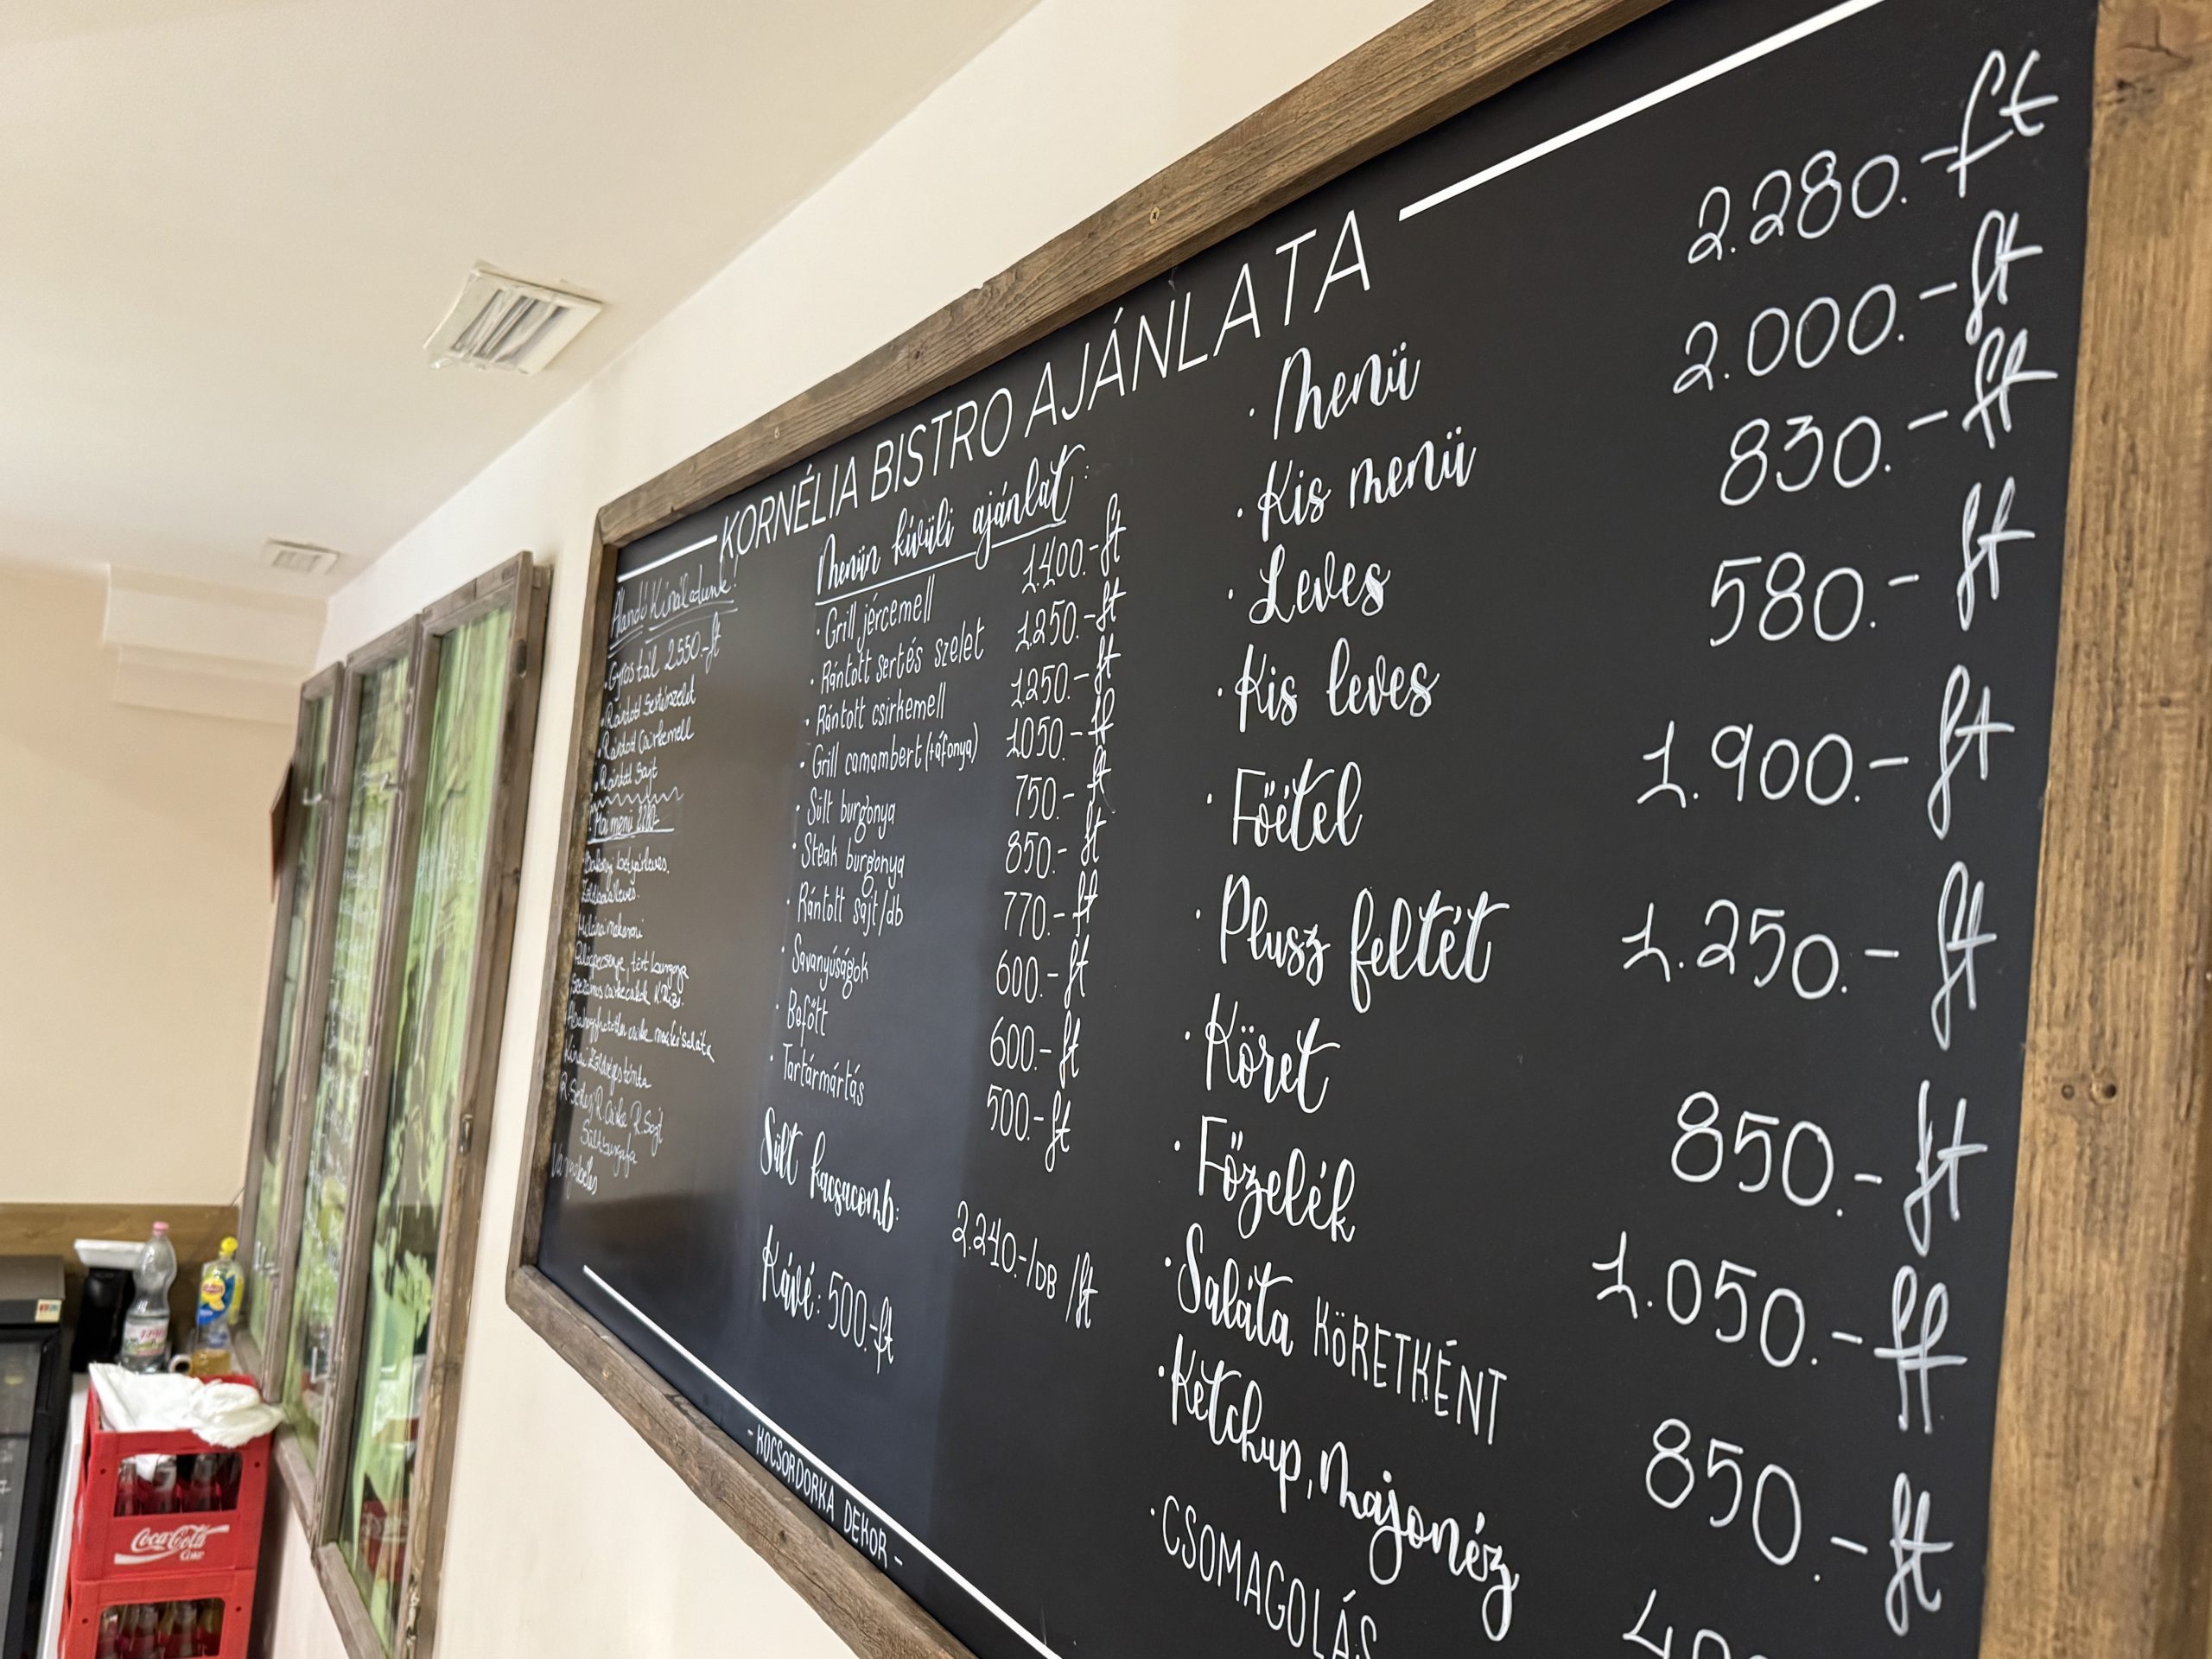 KORNÉLIA BISTRO AJÁNLATA
Állandó Kínálatunk!
Gyrostál 2550.-ft
Rántott Sertésszelet
Rántott Csirkemell
Rántott Sajt
Mai menü 2280.-
Zöldbableves
Milánói makaróni
tört burgonya
Kínai Zöldséges tészta
R. Sertés R. Csirke R. Sajt
Sült burgonya
Menün kívüli ajánlat:
· Grill jércemell 1400.-ft
· Rántott sertés szelet 1250.-ft
· Rántott csirkemell 1250.-ft
· Grill camambert (+áfonya) 1050.-ft
· Sült burgonya 750.-ft
· Steak burgonya 850.-ft
· Rántott sajt/db 770.-ft
· Savanyúságok 600.-ft
· Befőtt 600.-ft
· Tartármártás 500.-ft
Sült kacsacomb: 2.240.-/DB /ft
Kávé: 500.-ft
· Menü 2.280.-ft
· Kis menü 2.000.-ft
· Leves 830.-ft
· Kis leves 580.-ft
· Főétel 1.900.-ft
· Plusz feltét 1.250.-ft
· Köret 850.-ft
· Főzelék 1.050.-ft
· Saláta KÖRETKÉNT 850.-ft
· Ketchup, Majonéz
· CSOMAGOLÁS
- KOCSORDORKA DEKOR -
Coca-Cola
Coke